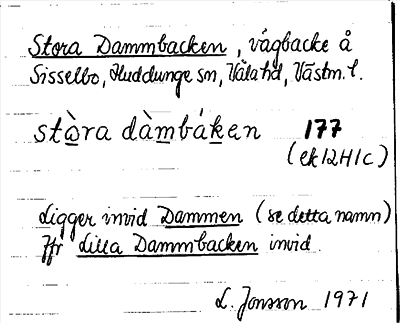 Stora Dammbacken, vägbacke å
Sisselbo, Huddunge sn, Våla hd, Västm. l.
stòra dàmbáken 177
(ek 12H1c)
Ligger invid Dammen (se detta namn)
Jfr Lilla Dammbacken invid
L. Jonsson 1971